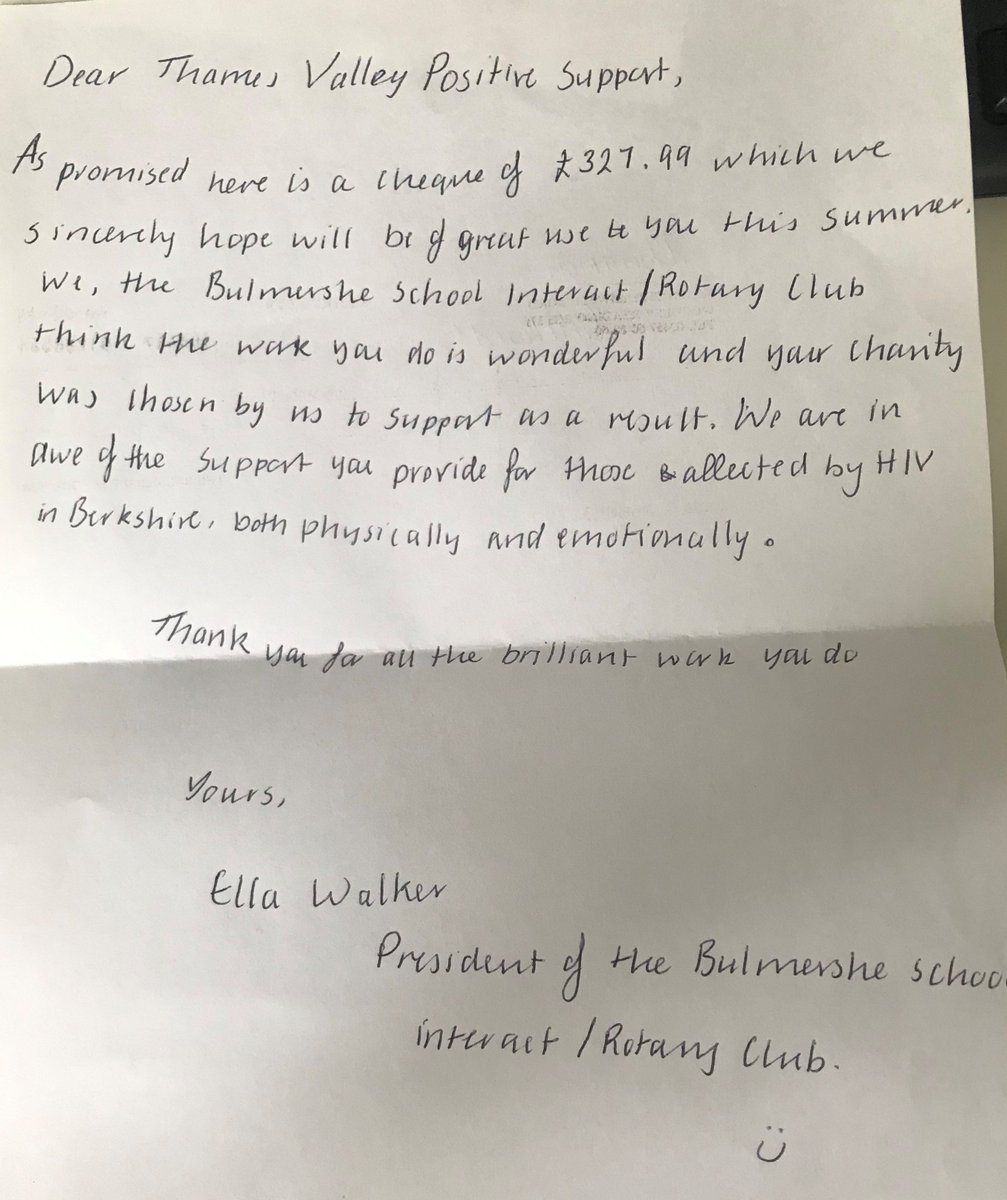 Dear Thames Valley Positive Support,
As promised here is a cheque of £327.99 which we
sincerely hope will be of great use to you this summer.
We, the Bulmershe School Interact/Rotary Club
think the work you do is wonderful and your charity
was chosen by us to support as a result. We are in
awe of the support you provide for those affected by HIV
in Berkshire, both physically and emotionally.
Thank you for all the brilliant work you do
Yours,
Ella Walker
President of the Bulmershe schoo
interact/Rotary Club.